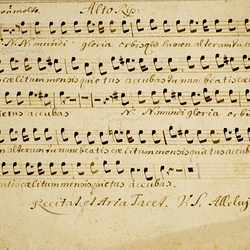 Alto Rip.
N: N: mundi gloria orbisque lumen alterum tu n
cælitum mensis quietus accubas tu nunc beatis cæl
ietus accubas N: N: mundi gloria orbis
m alterum tu nunc beatis cælitum mensis quietus accubas
atis cælitum mensis quietus accubas.
Recitat et Aria Tacet. V.S. Alleluj